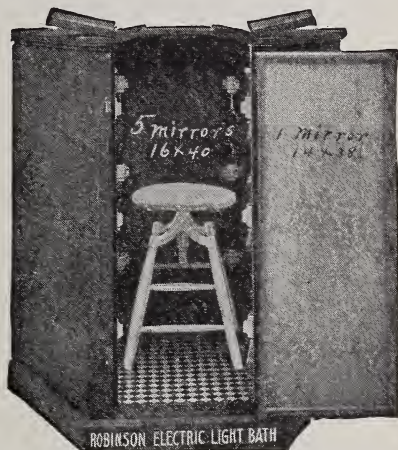 5 mirrors
16x40
1 mirror
14x38
ROBINSON ELECTRIC LIGHT BATH